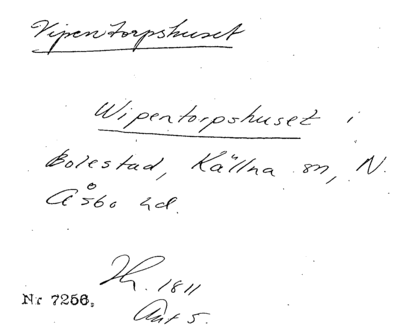 Vipentorpshuset
Wipentorpshuset i
Bolestad, Källna sn, N.
Åsbo hd.
Hr. 1811
Ant 5.
Nr 7256.